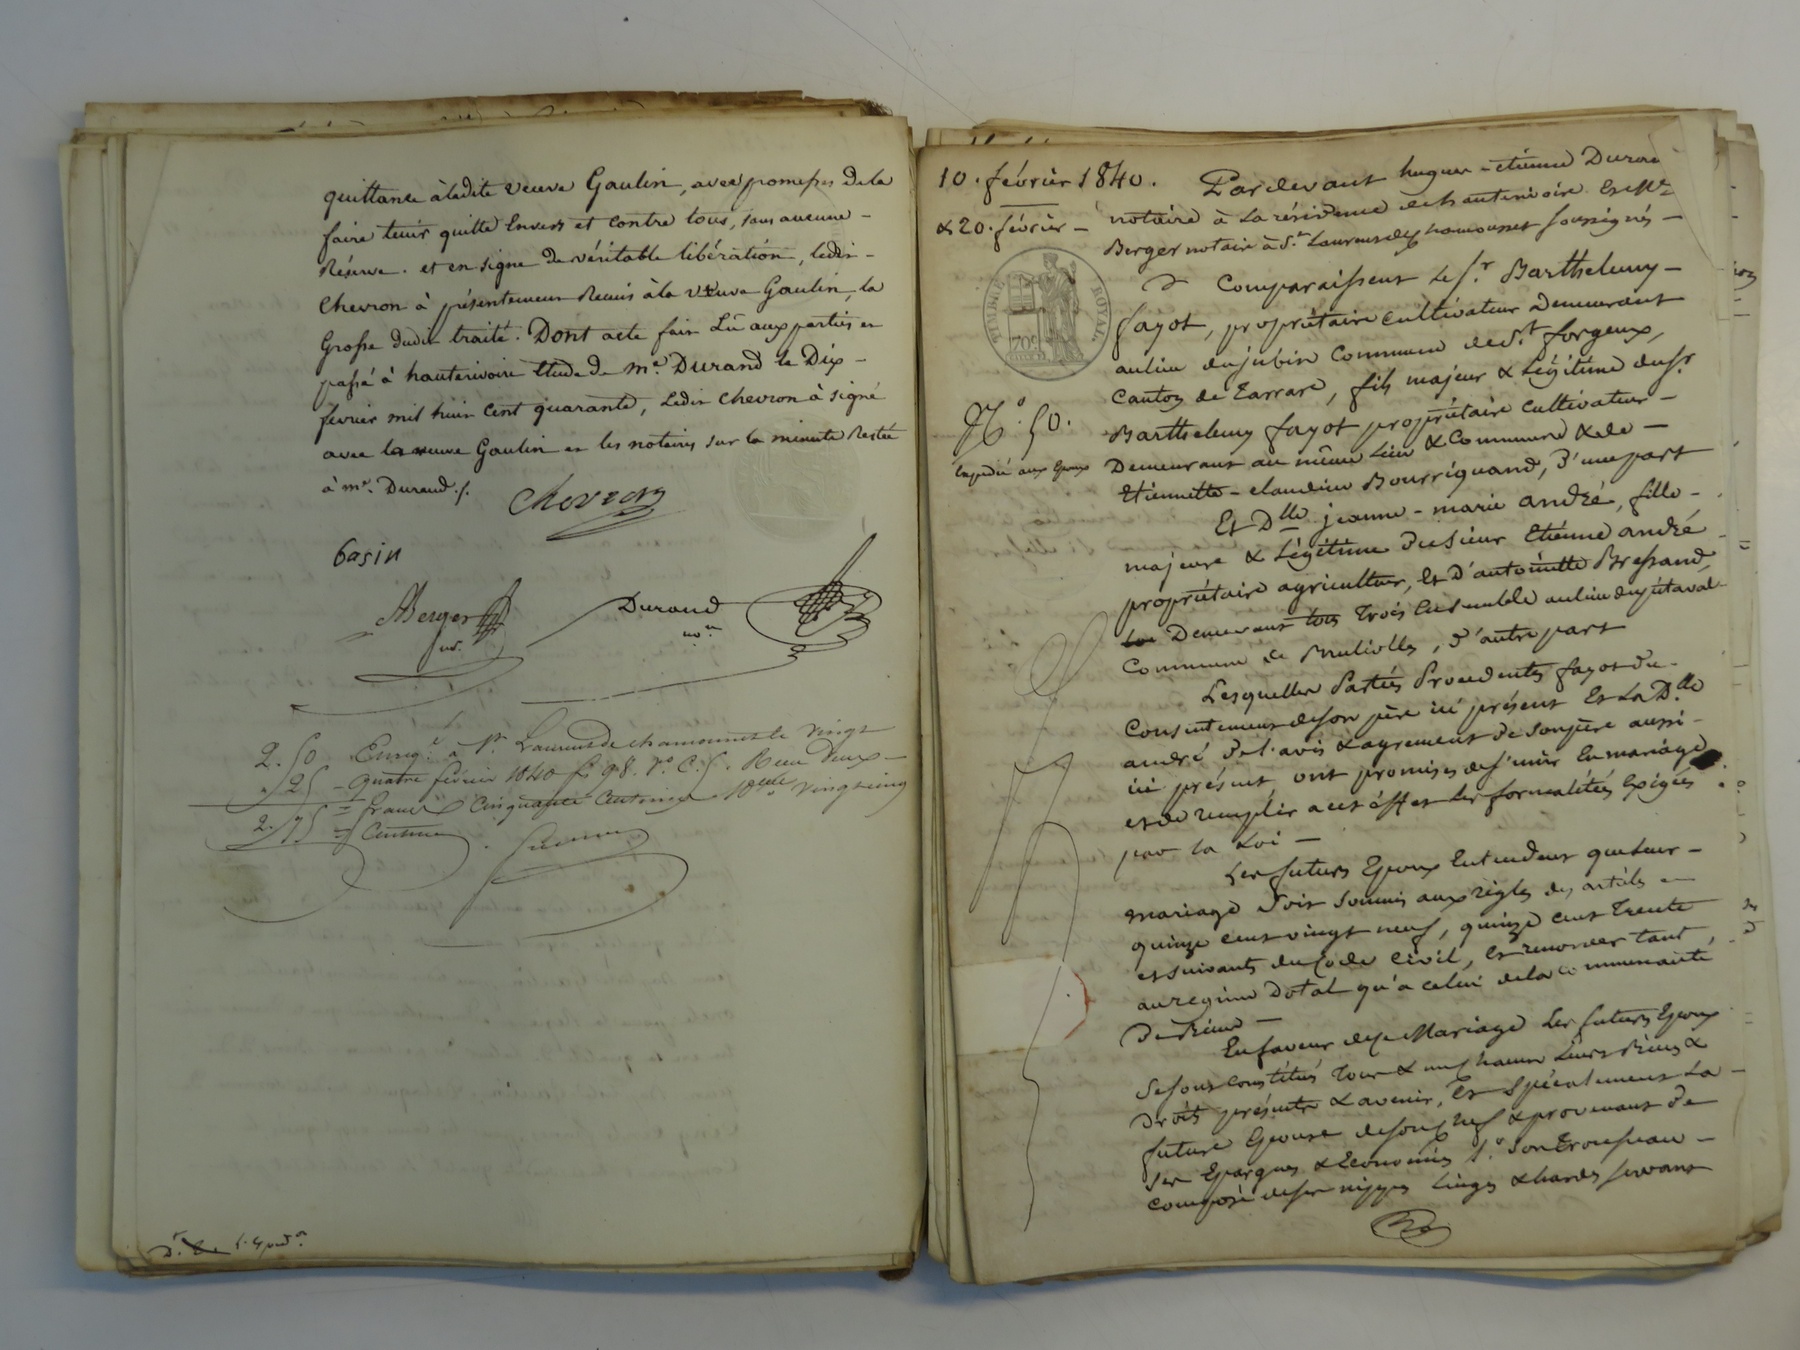 quittance à ladite veuve Gaulin, avec promesses de la
faire tenir quitte envers et contre tous, sans aucune -
Réserve. et en signe de véritable libération, ledit -
Chevron à présentement Remis à la veuve Gaulin, la
Grosse dudit traité. Dont acte fait Lû aux parties et
passé à hauterivoire Etude de me. Durand le Dix -
fevrier mil huit Cent quarante, Ledit Chevron à signé
avec la veuve Gaulin et les notaires sur la minute Restée
à me. Durand ./.
Chevron
Gasin
Berger
nre.
Durand
nore.
2.50 Enregé. à St. Laurent de chamousset le vingt
.25 - quatre février 1840 fo. 98. Vo. C. 5. Reçu deux -
2.75 = francs Cinquante Centimes 10eme vingt cinq
= Centimes
10. février 1840.
& 20. février -
No. 50.
Expedié aux Epoux
TIMBRE ROYAL
70c
Pardevant hugues - etienne Durand
notaire à La résidence de hauterivoire Et Me
Berger notaire à St. Laurent de chamousset soussignés -
Comparaissent Le Sr. Barthelemy -
fayot, propriétaire cultivateur Demeurant
au lieu du jubin Commune de St. forgeux,
Canton de Tarrare, fils majeur & Légitime du Sr.
Barthelemy fayot propriétaire cultivateur -
Demeurant au même Lieu & Commune & de -
Etiennette - claudine Bourriquand, D'une part
Et Dlle jeanne - marie andré, fille -
majeure & Légitime du Sieur Etienne andré
propriétaire agriculteur, Et D'antoinette Bressand,
Demeurant tous Trois Ensemble au lieu du pitaval
Commune de Brullolles, D'autre part
Lesquelles Parties Procedentes fayot du -
Consentement de son père ici présent Et La Dlle
andré De l'avis & agrement De son père aussi -
ici présent, ont promises de s'unir En mariage
et de remplir a cet éffet Les formalitées Exigées
par la Loi -
Les futurs Epoux Entendent que Leur -
mariage Soit Soumis aux règles des articles -
quinze cent vingt neuf, quinze cent Trente
et suivants du Code Civil, Et renoncer tant
au regime Dotal qu'a celui de la communauté
De Biens -
En faveur de ce Mariage Les futurs Epoux
Se sont Constitués Tous & un chacun Leurs Biens &
Droits présents & avenir, Et Spécialement La -
future Epouse de son chef & provenant De
Ses Epargnes & Economies 1.o Son Trousseau -
Composé de ses nippes Linges & hardes servant